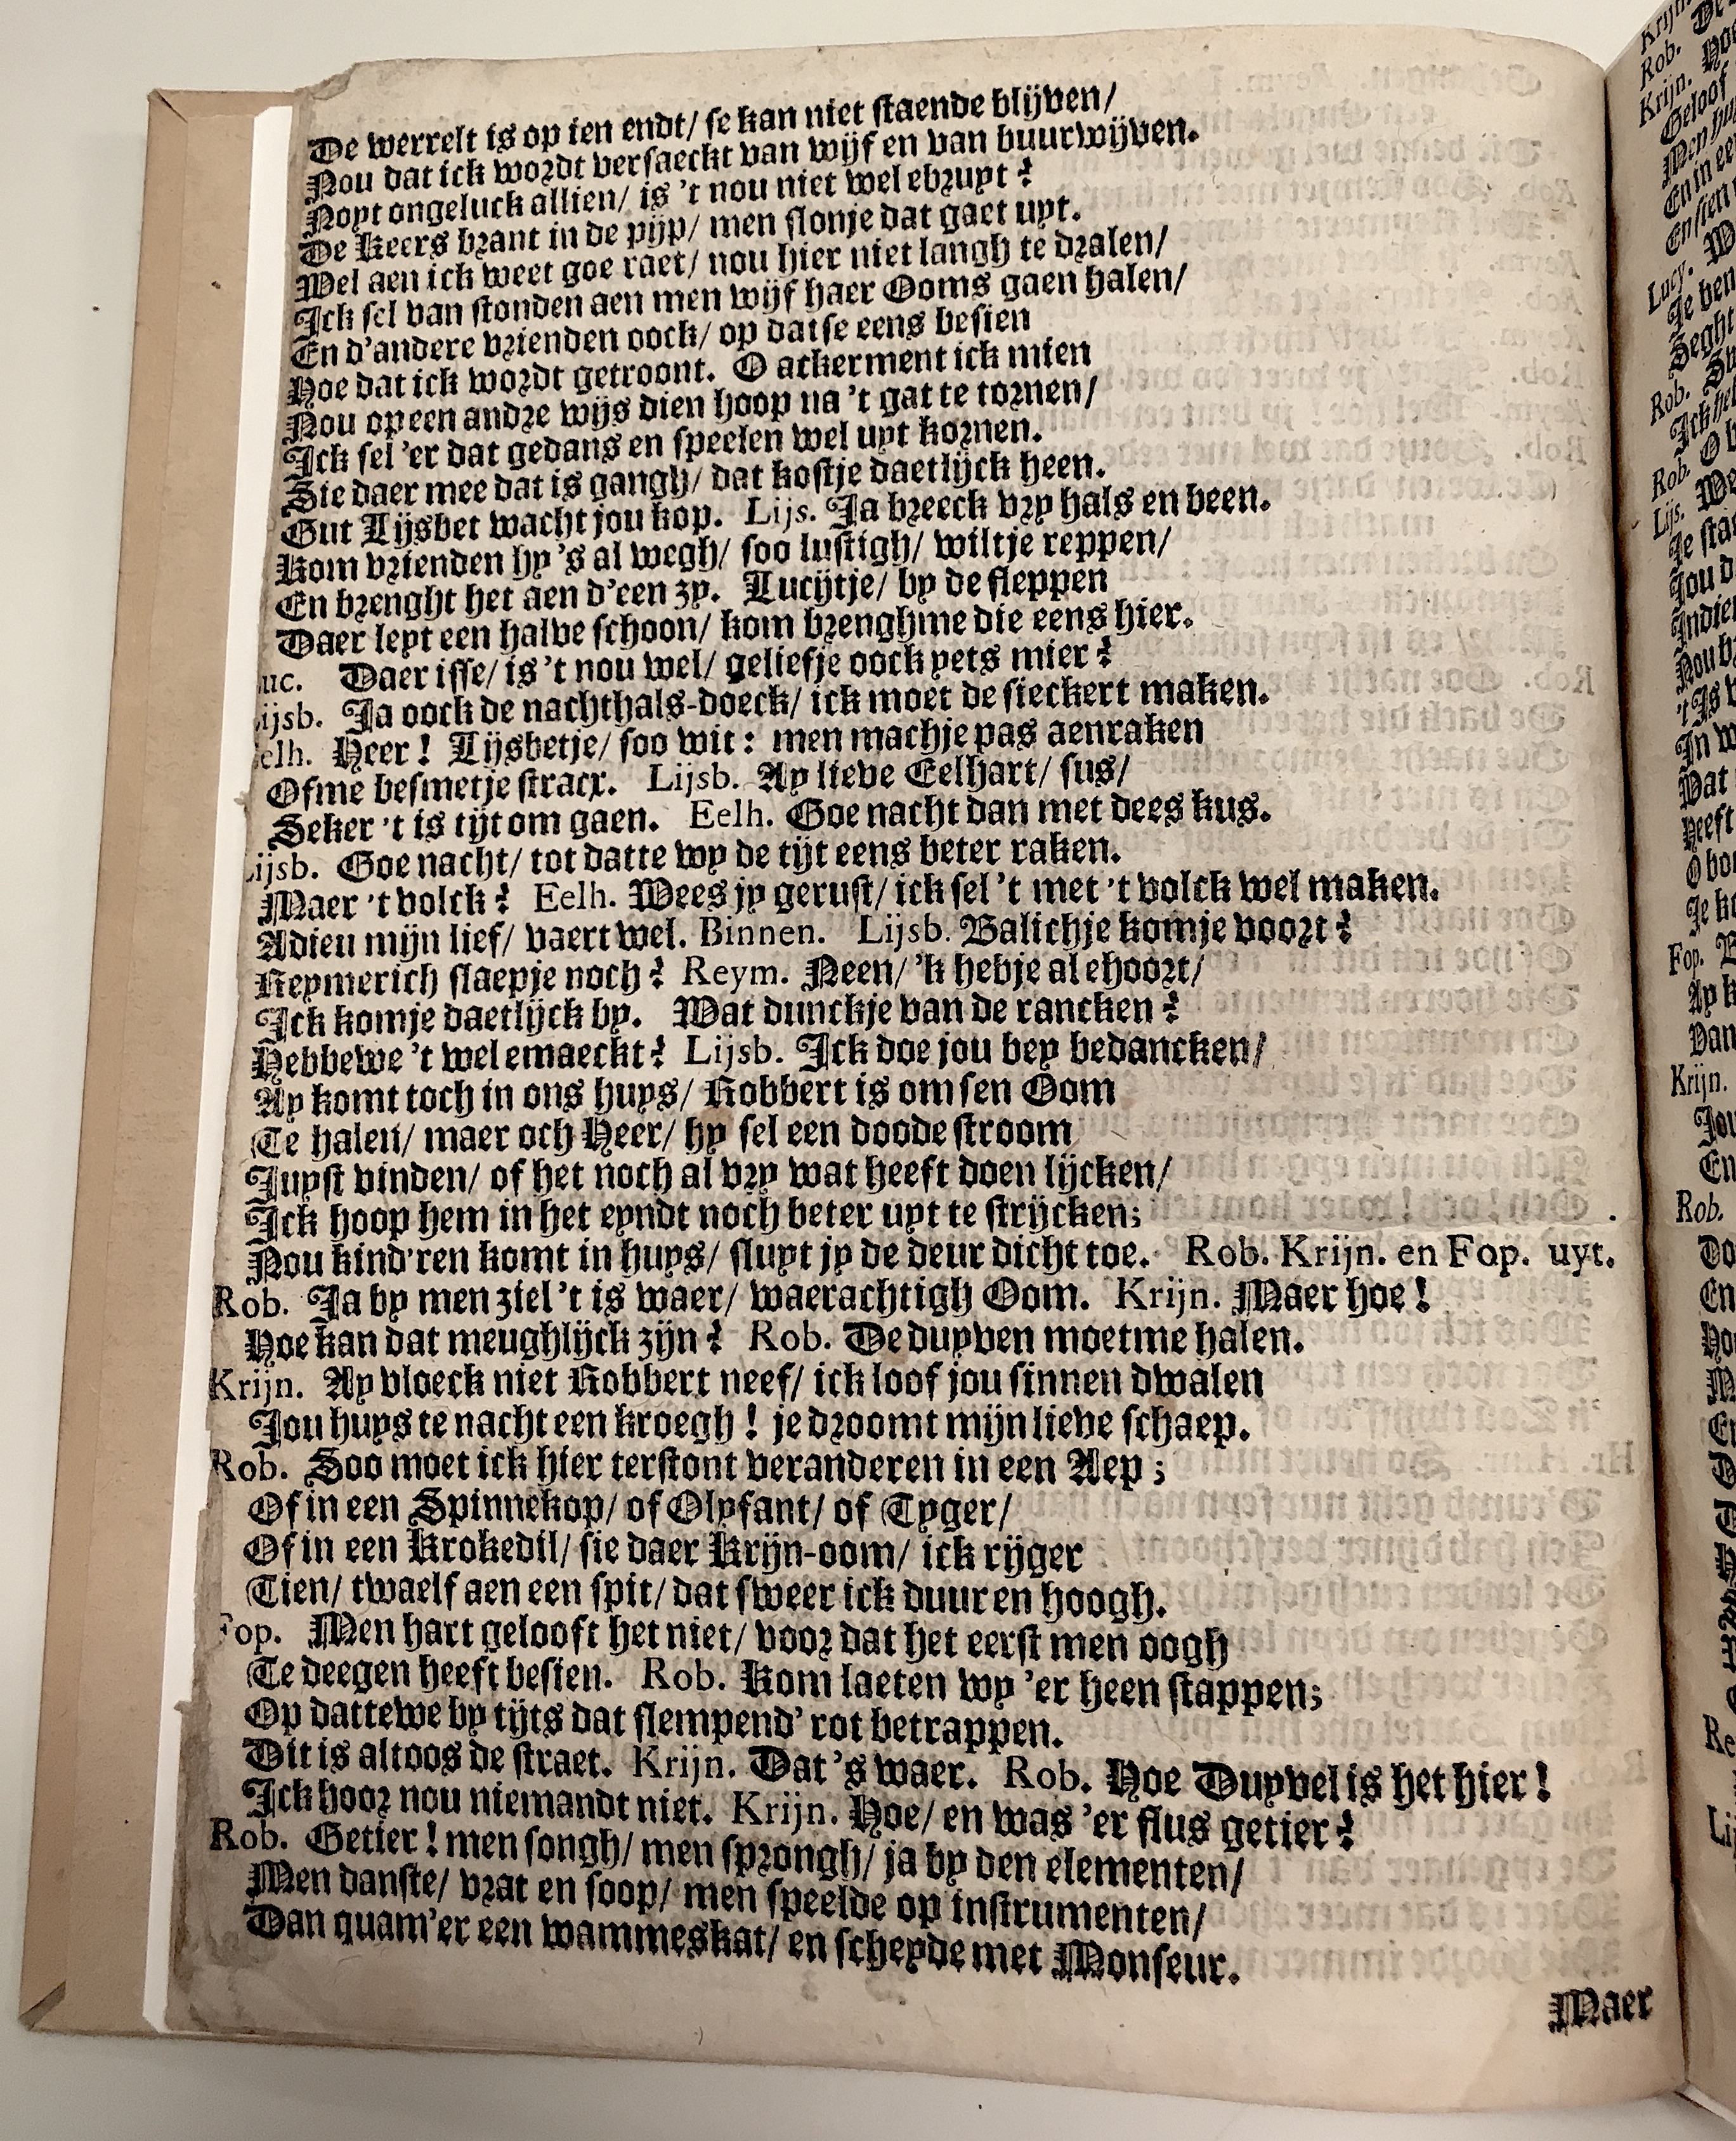 De werrelt is op ien endt/ se kan niet staende blijven/
Nou dat ick wordt versaeckt van wijf en van buurwijven.
Noyt ongeluck allien/ is 't nou niet wel ebruyt?
De keers brant in de pijp/ men slonje dat gaet uyt.
Wel aen ick weet goe raet/ nou hier niet langh te dralen/
Ick sel van stonden aen men wijf haer Ooms gaen halen/
En d'andere vrienden oock/ op datse eens besien
Hoe dat ick wordt getroont. O ackerment ick mien
Nou op een andre wijs dien hoop na 't gat te tornen/
Ick sel 'er dat gedans en speelen wel uyt kornen.
Sie daer mee dat is gangh/ dat kostje daetlijck heen.
Gut Lijsbet wacht jou kop. Lijs. Ja breeck vry hals en been.
Kom vrienden hy 's al wegh/ soo lustigh/ wiltje reppen/
En brenght het aen d'een zy. Lucijtje/ by de fleppen
Daer leyt een halve schoon/ kom brenghme die eens hier.
uc. Daer isse/ is 't nou wel/ geliefje oock yets mier?
ijsb. Ja oock de nachthals-doeck/ ick moet de sieckert maken.
elh. Heer! Lijsbetje/ soo wit: men machje pas aenraken
Ofme besmetje stracx. Lijsb. Ay lieve Eelhart/ sus/
Seker 't is tijt om gaen. Eelh. Goe nacht dan met dees kus.
ijsb. Goe nacht/ tot datte wy de tijt eens beter raken.
Maer 't volck? Eelh. Wees jy gerust/ ick sel 't met 't volck wel maken.
Adieu mijn lief/ vaert wel. Binnen. Lijsb. Balichje komje voort?
Reymerich slaepje noch? Reym. Neen/ 'k hebje al ehoort/
Ick komje daetlijck by. Wat dunckje van de rancken?
Hebbewe 't wel emaeckt? Lijsb. Ick doe jou bey bedancken/
Ay komt toch in ons huys/ Robbert is om sen Oom
Te halen/ maer och Heer/ hy sel een doode stroom
Juyst vinden/ of het noch al vry wat heeft doen lijcken/
Ick hoop hem in het eyndt noch beter uyt te strijcken;
Nou kind'ren komt in huys/ sluyt jy de deur dicht toe. Rob. Krijn. en Fop. uyt.
Rob. Ja by men ziel 't is waer/ waerachtigh Oom. Krijn. Maer hoe!
Hoe kan dat meughlijck zijn? Rob. De duyven moetme halen.
Krijn. Ay vloeck niet Robbert neef/ ick loof jou sinnen dwalen
Jou huys te nacht een kroegh! je droomt mijn lieve schaep.
Rob. Soo moet ick hier terstont veranderen in een Aep;
Of in een Spinnekop/ of Olyfant/ of Tyger/
Of in een Krokedil/ sie daer Krijn-oom/ ick rijger
Tien/ twaelf aen een spit/ dat sweer ick duur en hoogh.
Fop. Men hart gelooft het niet/ voor dat het eerst men oogh
Te deegen heeft besien. Rob. Kom laeten wy 'er heen stappen;
Op dattewe by tijts dat slempend' rot betrappen.
Dit is altoos de straet. Krijn. Dat 's waer. Rob. Hoe Duyvel is het hier!
Ick hoor nou niemandt niet. Krijn. Hoe/ en was 'er flus getier?
Rob. Getier! men songh/ men sprongh/ ja by den elementen/
Men danste/ vrat en soop/ men speelde op instrumenten/
Dan quam'er een wammeskat/ en scheyde met Monseur.
Maer